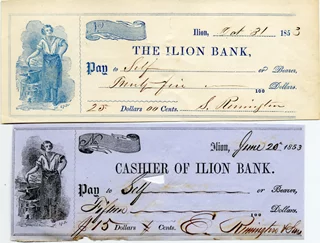 Ilion, Oct 21 1853
THE ILION BANK,
Pay to Self or Bearer,
Twenty five 100 Dollars.
25 Dollars 00 Cents. S. Remington
Ilion, June 20th 1853
CASHIER OF ILION BANK.
Pay to Self or Bearer,
Fifteen 100 Dollars.
$15 Dollars Cents. E. Remington & Sons